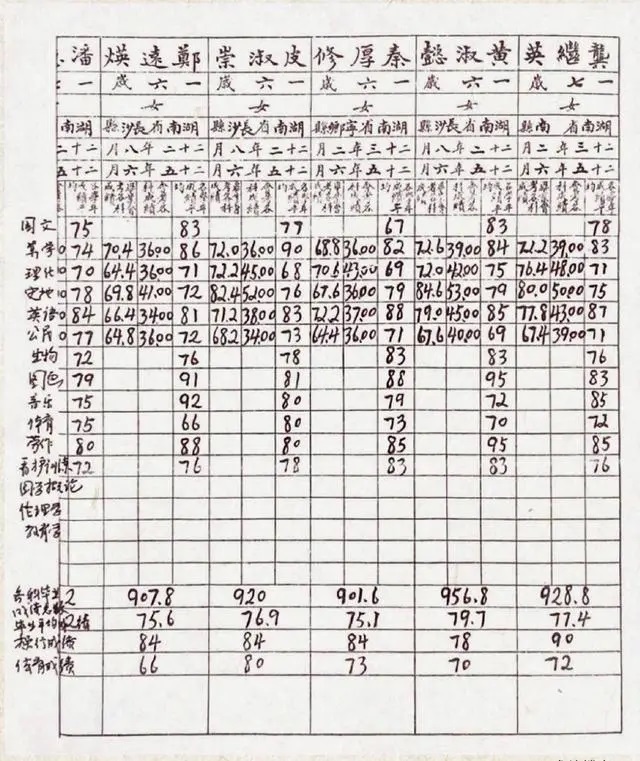 龔繼英 黄淑懿 秦厚修 皮淑崇 鄭遠煐 潘
一七歲 一六歲 一六歲 一六歲 一六歲 一
女 女 女 女 女
湖南省南縣 湖南省長沙縣 湖南省寧鄉縣 湖南省長沙縣 湖南省長沙縣 湖南
二十三年二月 二十二年八月 二十三年二月 二十二年八月 二十二年八月 二十二
二十五年六月 二十五年六月 二十五年六月 二十五年六月 二十五年六月 二十五
国文 75 83 77 67 83 78
算学 0 74 70.4 36.00 86 72.0 36.00 90 68.8 36.00 82 72.6 39.00 84 72.2 39.00 83
理化 0 70 64.4 36.00 71 72.2 45.00 68 70.6 43.00 69 72.0 42.00 75 76.4 48.00 71
史地 0 78 69.8 41.00 72 82.4 52.00 76 67.6 36.00 79 84.6 53.00 79 80.0 50.00 75
英语 0 84 66.4 34.00 81 71.2 38.00 83 72.2 37.00 88 79.0 45.00 85 77.8 43.00 87
公民 0 77 64.8 36.00 72 68.2 34.00 73 64.4 36.00 71 67.6 40.00 69 67.4 39.00 71
生物 72 76 78 83 83 76
图画 79 91 81 88 95 83
音乐 75 92 80 79 72 85
体育 75 66 80 73 70 72
劳作 80 88 80 85 95 85
看护训练 72 76 78 83 83 76
国学概论
伦理学
教育学
2 907.8 920 901.6 956.8 928.8
毕业平均 75.6 76.9 75.1 79.7 77.4
操行成绩 84 84 84 78 90
体育成绩 66 80 73 70 72